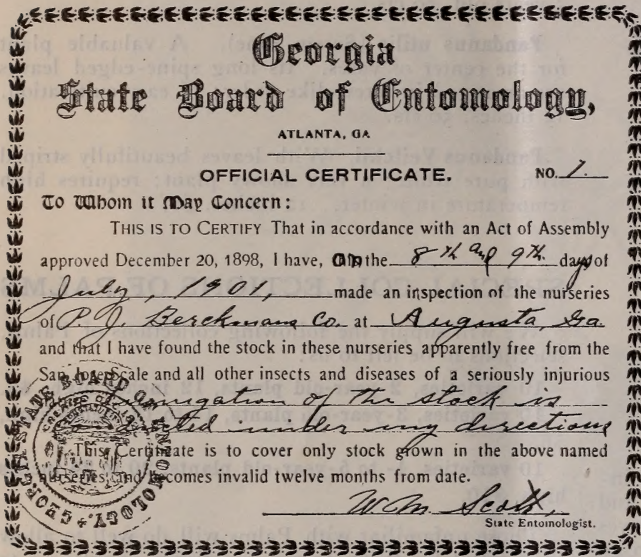 Georgia
State Board of Entomology,
ATLANTA, GA
OFFICIAL CERTIFICATE. NO. 1.
To Whom it May Concern:
THIS IS TO CERTIFY That in accordance with an Act of Assembly
approved December 20, 1898, I have, on the 8th and 9th days of
July, 1901, made an inspection of the nurseries
of P. J. Berckmans Co. at Augusta, Ga
and that I have found the stock in these nurseries apparently free from the
San Jose Scale and all other insects and diseases of a seriously injurious
Fumigation of the stock is
under my directions
This Certificate is to cover only stock grown in the above named
nurseries and becomes invalid twelve months from date.
W M Scott,
State Entomologist.
STATE BOARD OF ENTOMOLOGY